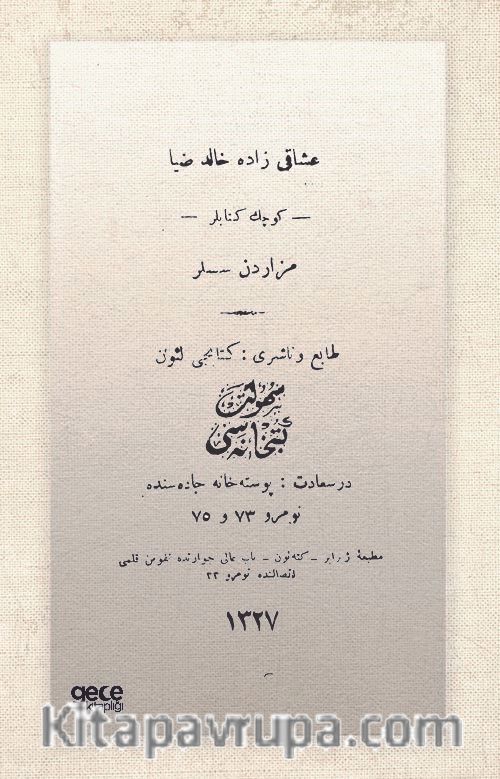 عشاقی زاده خالد ضیا
— كوچك كتابلر —
مزاردن سسلر
طابع و ناشری : كتابجی لئون
سهولت
كتبخانه سی
درسعادت : پوسته خانه جاده سنده
نومرو ۷۳ و ۷۵
مطبعهٔ – كته ئون – باب عالی جوارنده نفوس قلمی
اتصالنده نومرو ۲۲
۱۳۲۷
gece
kitaplığı
Kitapavrupa.com